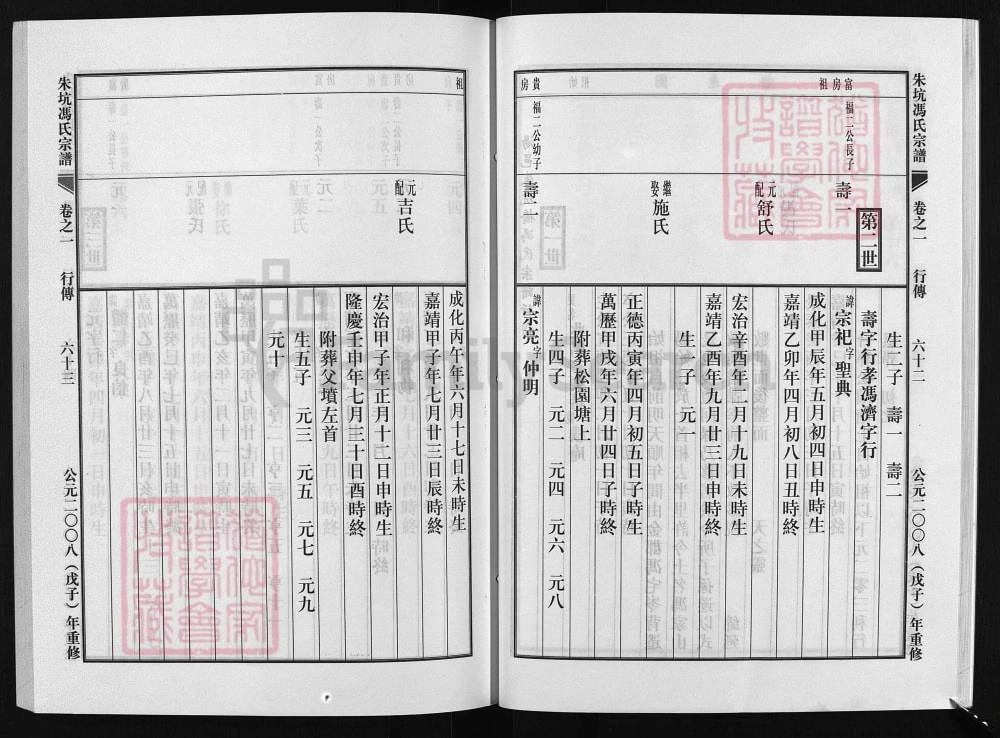 朱坑馮氏宗譜
卷之一
行傳
六十二
公元二〇〇八(戊子)年重修
富房祖
貴房
福二公長子
福二公幼子
第二世
壽一
元配舒氏
繼娶施氏
壽二
生二子 壽一 壽二
壽字行孝馮濟字行
諱宗祀字聖典
成化甲辰年五月初四日申時生
嘉靖乙卯年四月初八日丑時終
宏治辛酉年二月十九日未時生
嘉靖乙酉年九月廿三日申時終
生一子 元一
正德丙寅年四月初五日子時生
萬歷甲戌年六月廿四日子時終
附葬松園塘上
生四子 元二 元四 元六 元八
諱宗亮字仲明
朱坑馮氏宗譜
卷之一
行傳
六十三
公元二〇〇八(戊子)年重修
祖
元配吉氏
成化丙午年六月十七日未時生
嘉靖甲子年七月廿三日辰時終
宏治甲子年正月十二日申時生
隆慶壬申年七月三十日酉時終
附葬父墳左首
生五子 元三 元五 元七 元九
元十